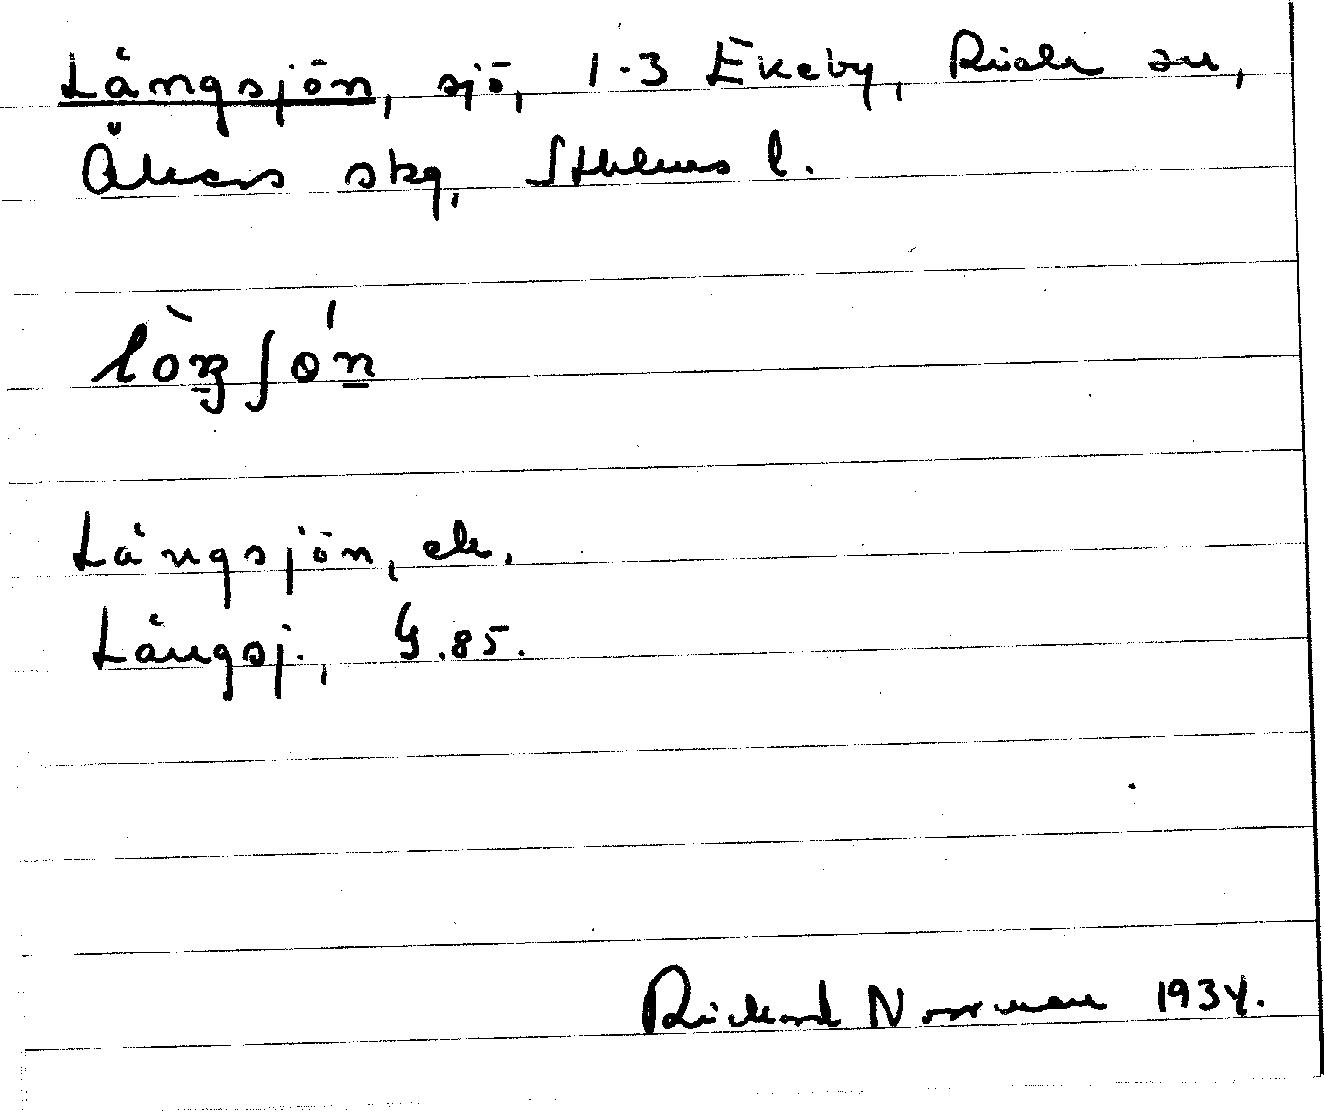 Långsjön, sjö, 1-3 Ekeby, Riala sn,
Åkers skg, Sthlms l.
lòŋʃǿn
Långsjön, ek.
Långsj., G.85.
Rickard Norrman 1934.